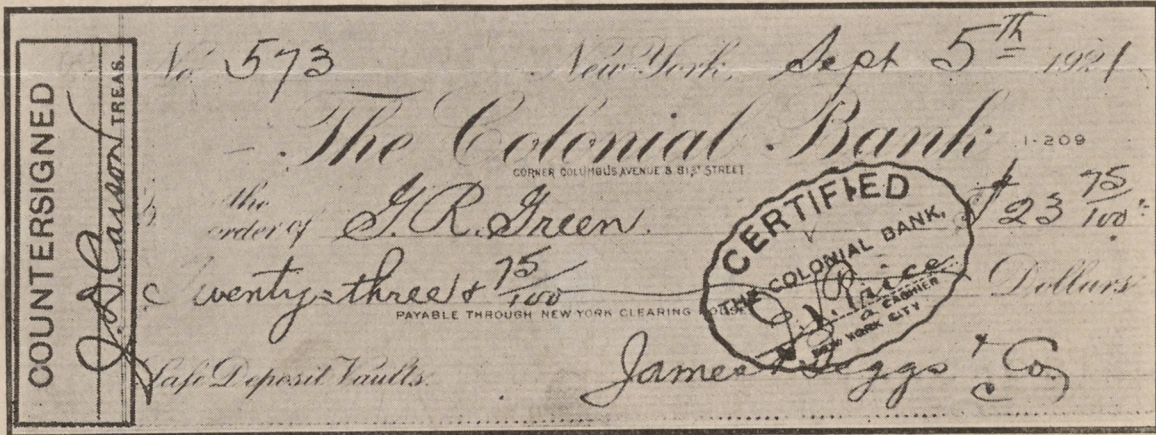 COUNTERSIGNED
TREAS.
No 573 New York, Sept 5th 1921
The Colonial Bank 1-209
CORNER COLUMBUS AVENUE & 81ST STREET
the
order of G. R. Green $23 75/100
Twenty=three & 75/100 Dollars
PAYABLE THROUGH NEW YORK CLEARING HOUSE
CERTIFIED
THE COLONIAL BANK,
CASHIER
NEW YORK CITY
Safe Deposit Vaults.
James & Co